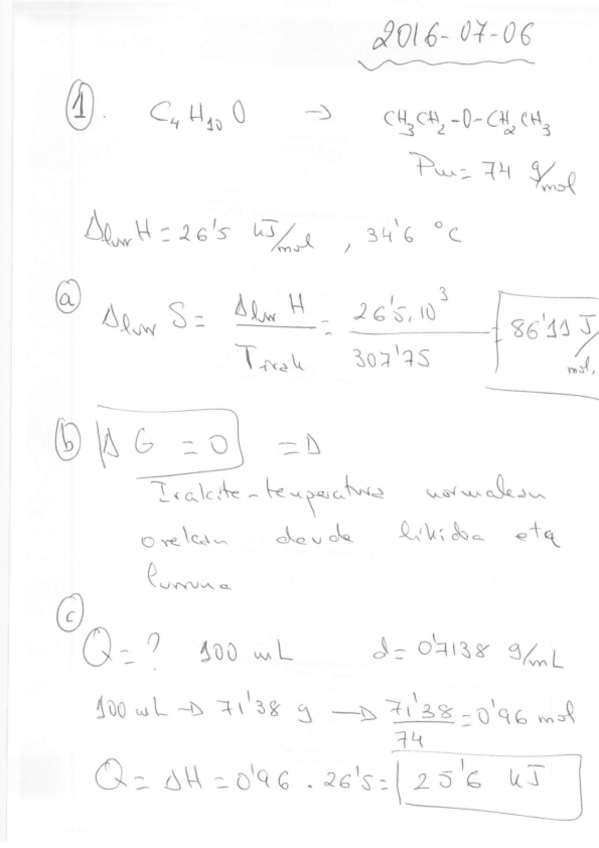 2016-07-06
1. C4H10O → CH3CH2-O-CH2CH3
Pm = 74 g/mol
ΔlurrH = 26'5 kJ/mol, 34'6 °C
a ΔlurrS = ΔlurrH / Tirak = 26'5.10^3 / 307'75 = 86'11 J/mol.
b ΔG = 0 =D
Irakite-tenperatura normalean
orekan daude likidoa eta
lurruna
c
Q = ? 100 mL d = 0'7138 g/mL
100 mL → 71'38 g → 71'38/74 = 0'96 mol
Q = ΔH = 0'96 . 26'5 = 25'6 kJ